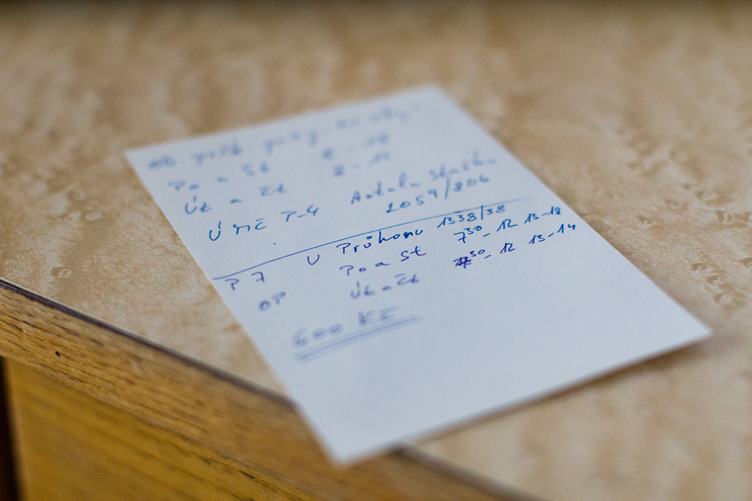 Po a St 8 - 18
Út a Čt 8 - 15
Ú MČ P-4 Antala Staška
2059/80b
P7 U Průhonu 1338/38
OP Po a St 7³⁰- 12 13-18
Út a Čt 7³⁰- 12 13-14
600 Kč